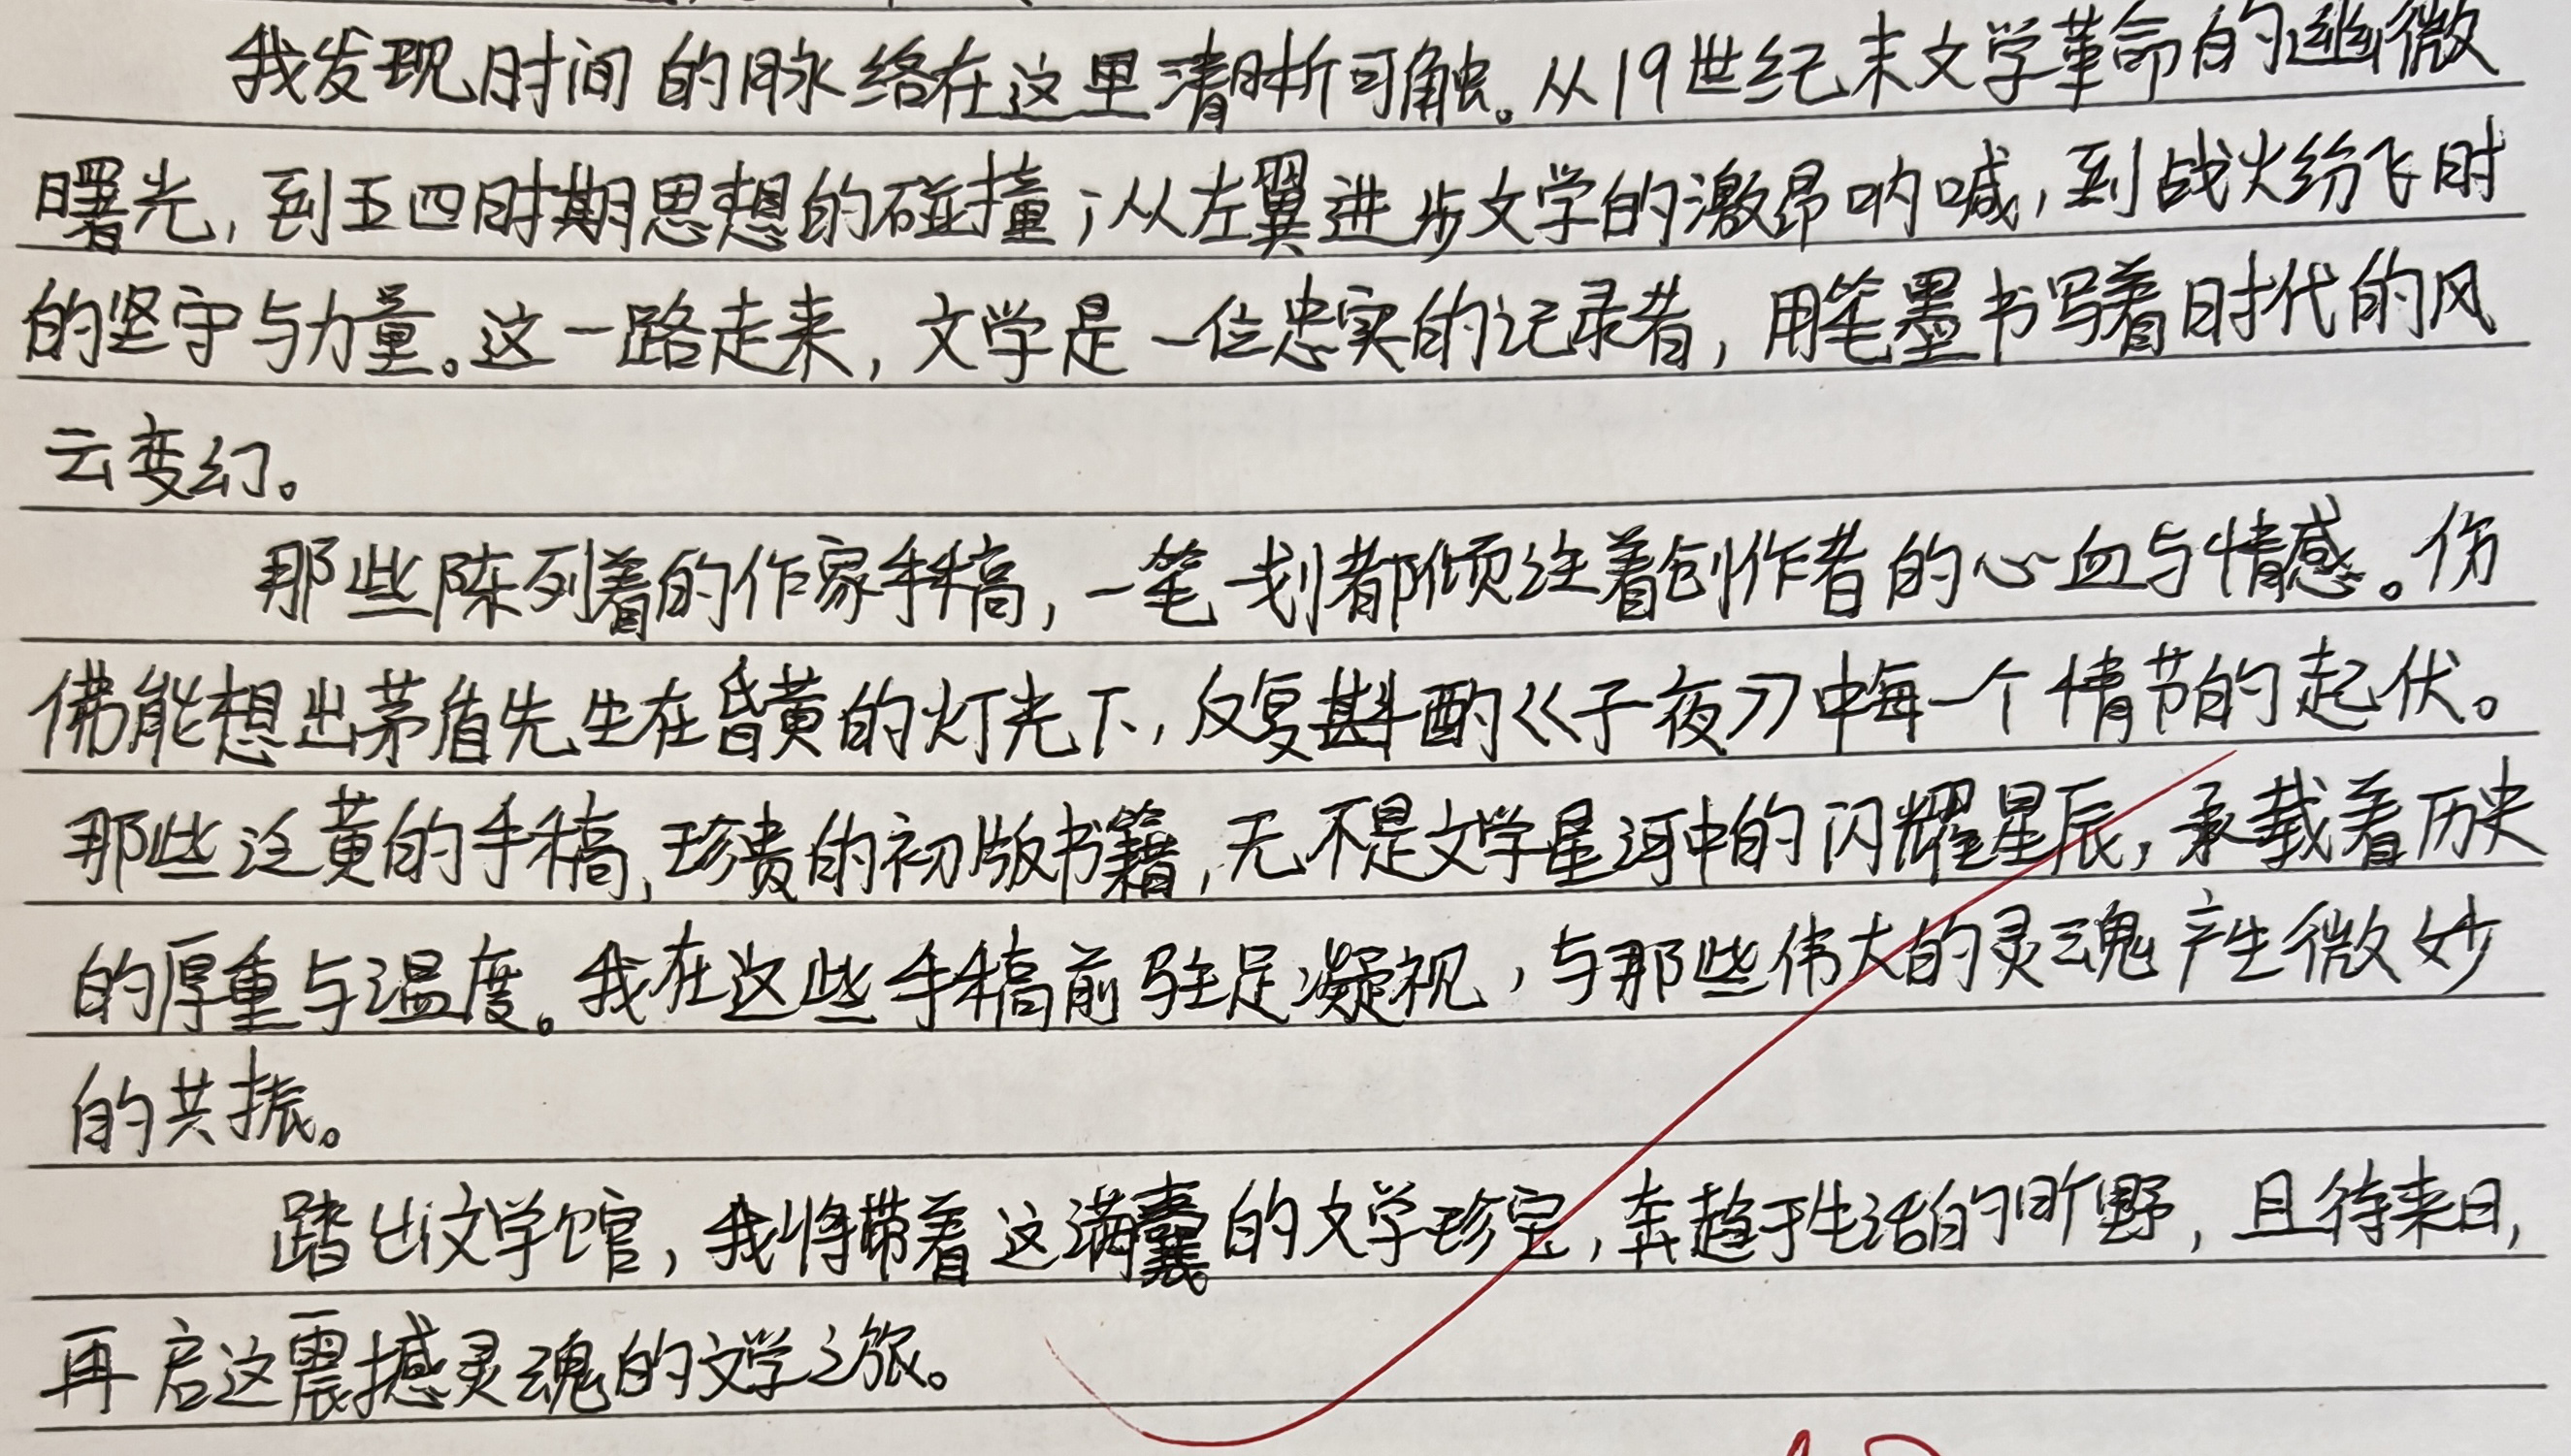 我发现时间的脉络在这里清晰可触。从19世纪末文学革命的幽微
曙光，到五四时期思想的碰撞；从左翼进步文学的激昂呐喊，到战火纷飞时
的坚守与力量。这一路走来，文学是一位忠实的记录者，用笔墨书写着时代的风
云变幻。
那些陈列着的作家手稿，一笔一划都倾注着创作者的心血与情感。仿
佛能想出茅盾先生在昏黄的灯光下，反复斟酌《子夜》中每一个情节的起伏。
那些泛黄的手稿，珍贵的初版书籍，无不是文学星河中的闪耀星辰，承载着历史
的厚重与温度。我在这些手稿前驻足凝视，与那些伟大的灵魂产生微妙
的共振。
踏出文学馆，我将带着这满囊的文学珍宝，奔趋于生活的旷野，且待来日，
再启这震撼灵魂的文学之旅。